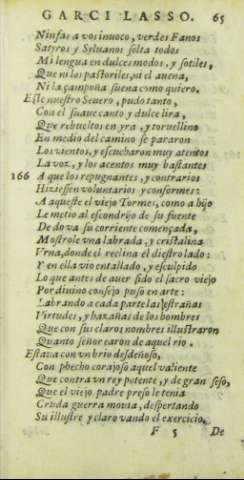 GARCI LASSO. 65
Ninfas a vos inuoco, verdes Fanos
Satyros y Syluanos solta todos
Mi lengua en dulces modos, y sotiles,
Que ni los pastoriles, ni el auena,
Ni la çampoña suena como quiero.
Este nuestro Seuero, pudo tanto,
Con el suaue canto y dulce lira,
Que rebueltos en yra, y toruellino
En medio del camino se pararon
Los vientos, y escucharon muy atentos
La voz, y los acentos muy bastantes
166 A que los repugnantes, y contrarios
Hiziessen voluntarios y conformes:
A aqueste el viejo Tormes, como a hijo
Le metio al escondrijo de su fuente
De do va su corriente començada,
Mostrole vna labrada, y cristalina
Vrna, donde el reclina el diestro lado:
Y en ella vio entallado, y esculpido
Lo que antes de auer sido el sacro viejo
Por diuino consejo puso en arte:
Labrando a cada parte las estrañas
Virtudes, y hazañas de los hombres
Que con sus claros nombres illustraron
Quanto señorearon de aquel rio.
Estaua con vn brio desdeñoso,
Con phecho corajoso aquel valiente
Que contra vn rey potente, y de gran seso,
Que el viejo padre preso le tenia
Cruda guerra mouia, despertando
Su illustre y claro vando el exercicio,
F 5 De